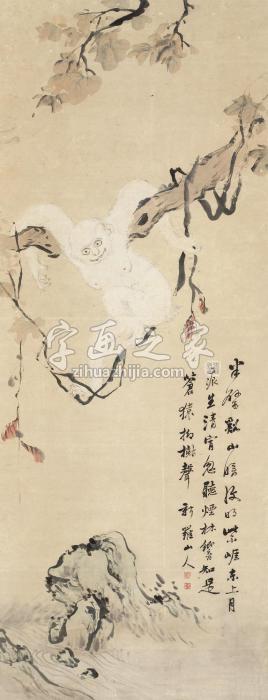 半壁山暗復明紫崖東上月
派生清宵忽聽煙林響知是
蒼猿拗樹聲 新羅山人
字画之家
zihuazhijia.com